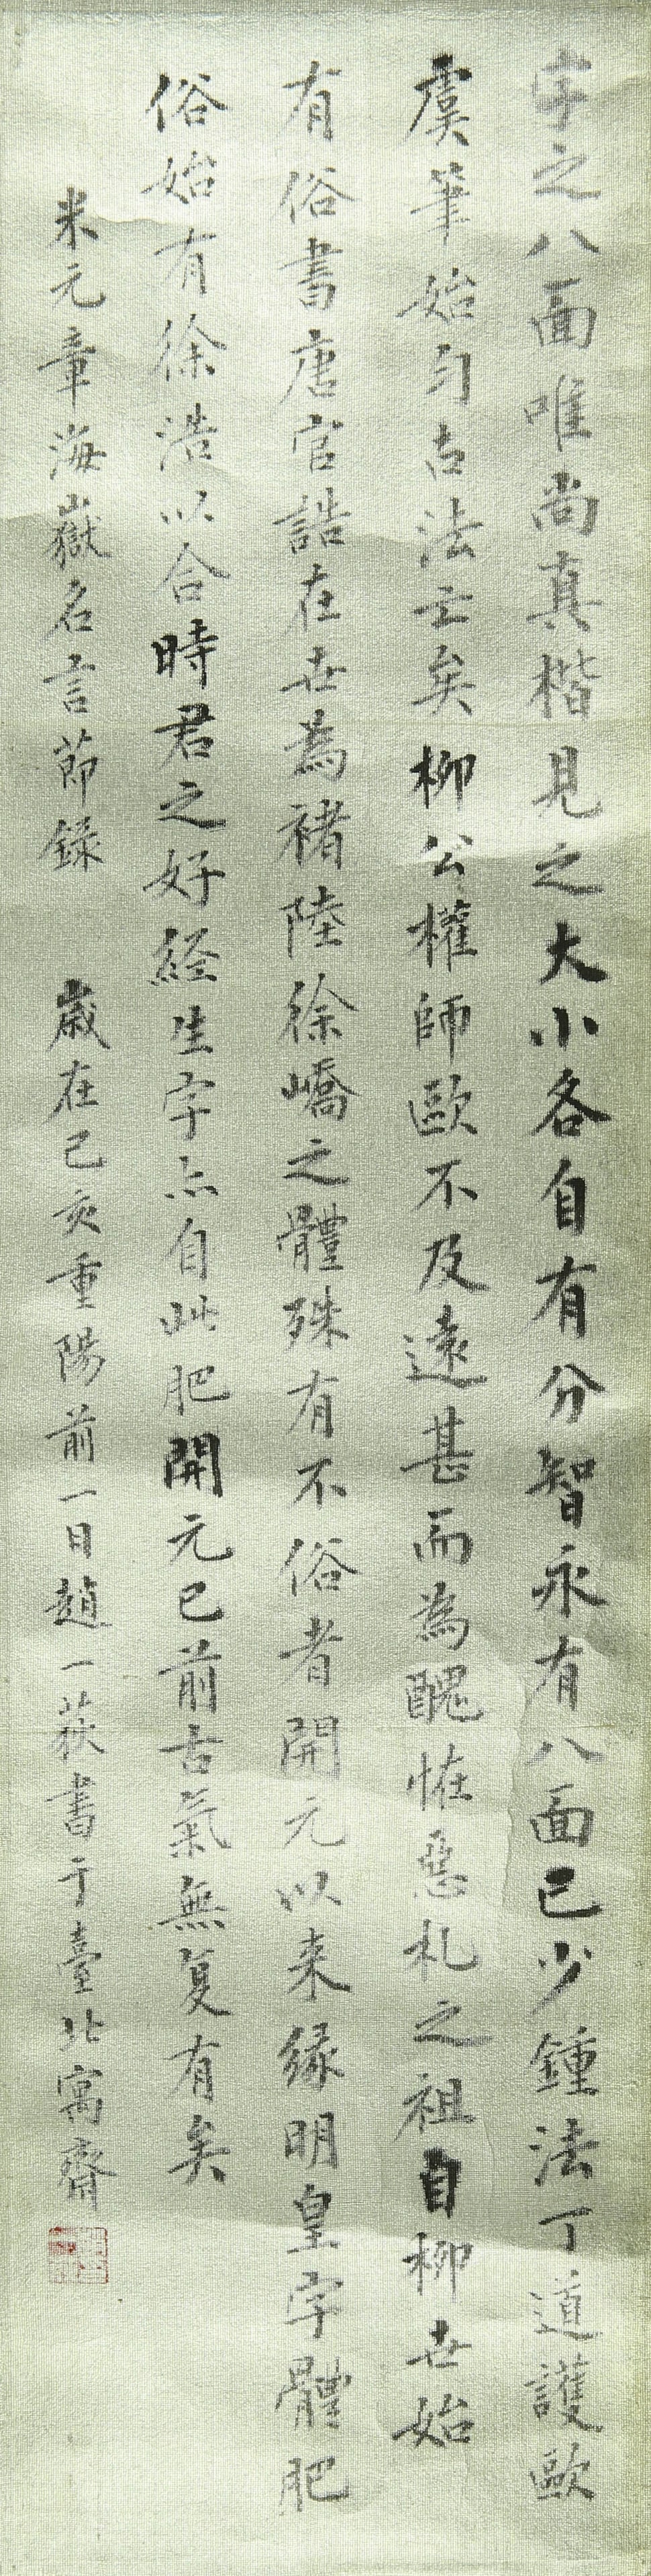 字之八面唯尚真楷見之大小各自有分智永有八面已少鍾法丁道護歐
虞筆始勻古法亡矣柳公權師歐不及遠甚而為醜怪惡札之祖自柳世始
有俗書唐官誥在世為褚陸徐嶠之體殊有不俗者開元以来緣明皇字體肥
俗始有徐浩以合時君之好経生字亦自此肥開元已前古氣無复有矣
米元章海嶽名言節錄 歲在己亥重陽前一日趙一荻書于臺北寓齋